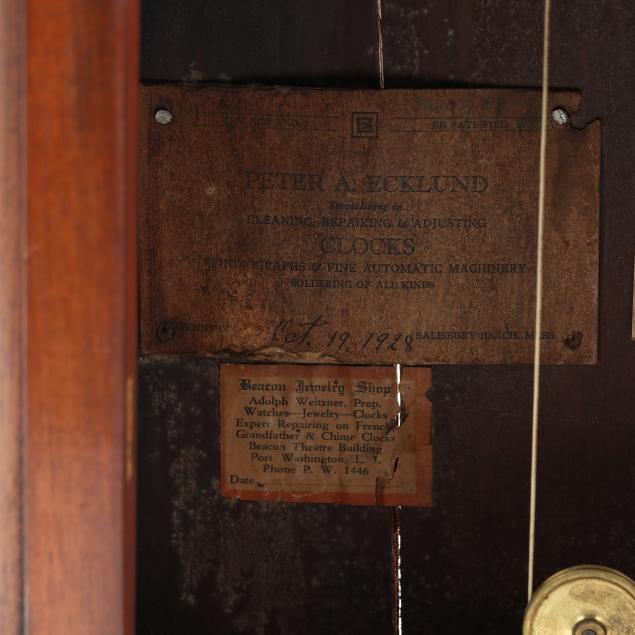 BE SATISFIED
PETER A. ECKLUND
Specializing in
CLEANING, REPAIRING & ADJUSTING
CLOCKS
PHONOGRAPHS & FINE AUTOMATIC MACHINERY
SOLDERING OF ALL KINDS
Oct. 19. 1928 SALISBURY BEACH, MASS.
Beacon Jewelry Shop
Adolph Weitzner, Prop.
Watches—Jewelry—Clocks
Expert Repairing on French
Grandfather & Chime Clocks
Beacon Theatre Building
Port Washington, L. I.
Phone P. W. 1446
Date